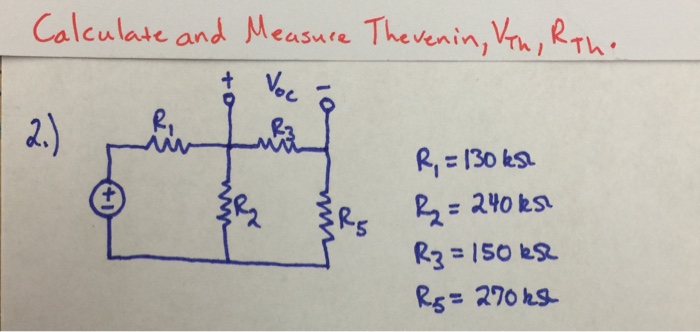 Calculate and Measure Thevenin, VTh, RTh.
2.)
+ Voc -
R1
R3
R2
R5
+
-
R1 = 130 kΩ
R2 = 240 kΩ
R3 = 150 kΩ
R5 = 270 kΩ